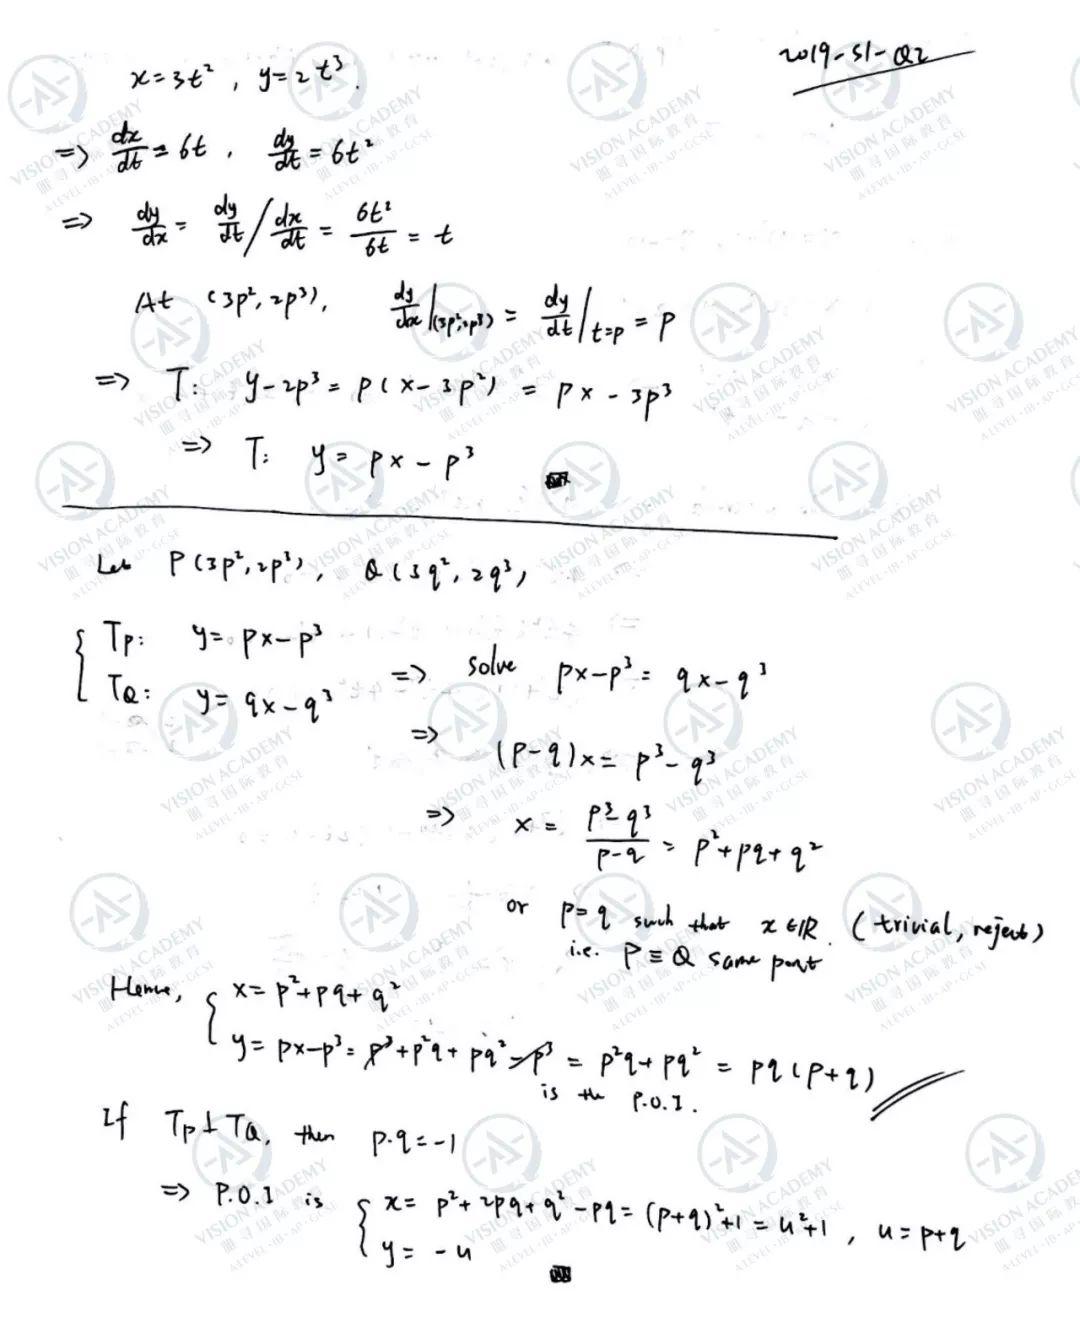 2019-S1-Q2
x=3t², y=2t³.
=> dx/dt = 6t, dy/dt = 6t²
=> dy/dx = dy/dt / dx/dt = 6t²/6t = t
At (3p², 2p³), dy/dx|(3p²,2p³) = dy/dt|t=p = p
=> T: y-2p³ = p(x-3p²) = px - 3p³
=> T: y = px - p³
Let P(3p², 2p³), Q(3q², 2q³)
{ Tp: y = px-p³
TQ: y = qx-q³
=> solve px-p³ = qx-q³
=> (p-q)x = p³-q³
=> x = p³-q³/p-q = p²+pq+q²
or p=q such that x∈ℝ. (trivial, reject)
i.e. P≡Q same point
Hence, { x = p²+pq+q²
y = px-p³ = p³+p²q+pq²-p³ = p²q+pq² = pq(p+q)
is the P.O.I.
If Tp⊥TQ, then p·q=-1
=> P.O.I is { x = p²+2pq+q²-pq = (p+q)²+1 = u²+1, u=p+q
y = -u
VISION ACADEMY
A-LEVEL·IB·AP·GCSE